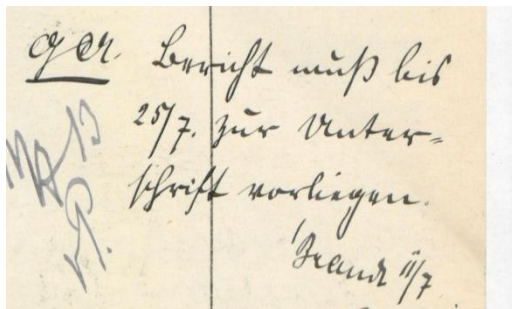 Bericht muß bis
25/7. zur Unter-
schrift vorliegen.
11/7